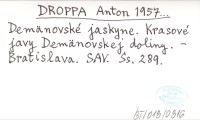 DROPPA Anton 1957...
Demänovské jaskyne. Krasové
javy Demänovskej doliny. -
Bratislava. SAV. Ss. 289.
BJ/013/0316